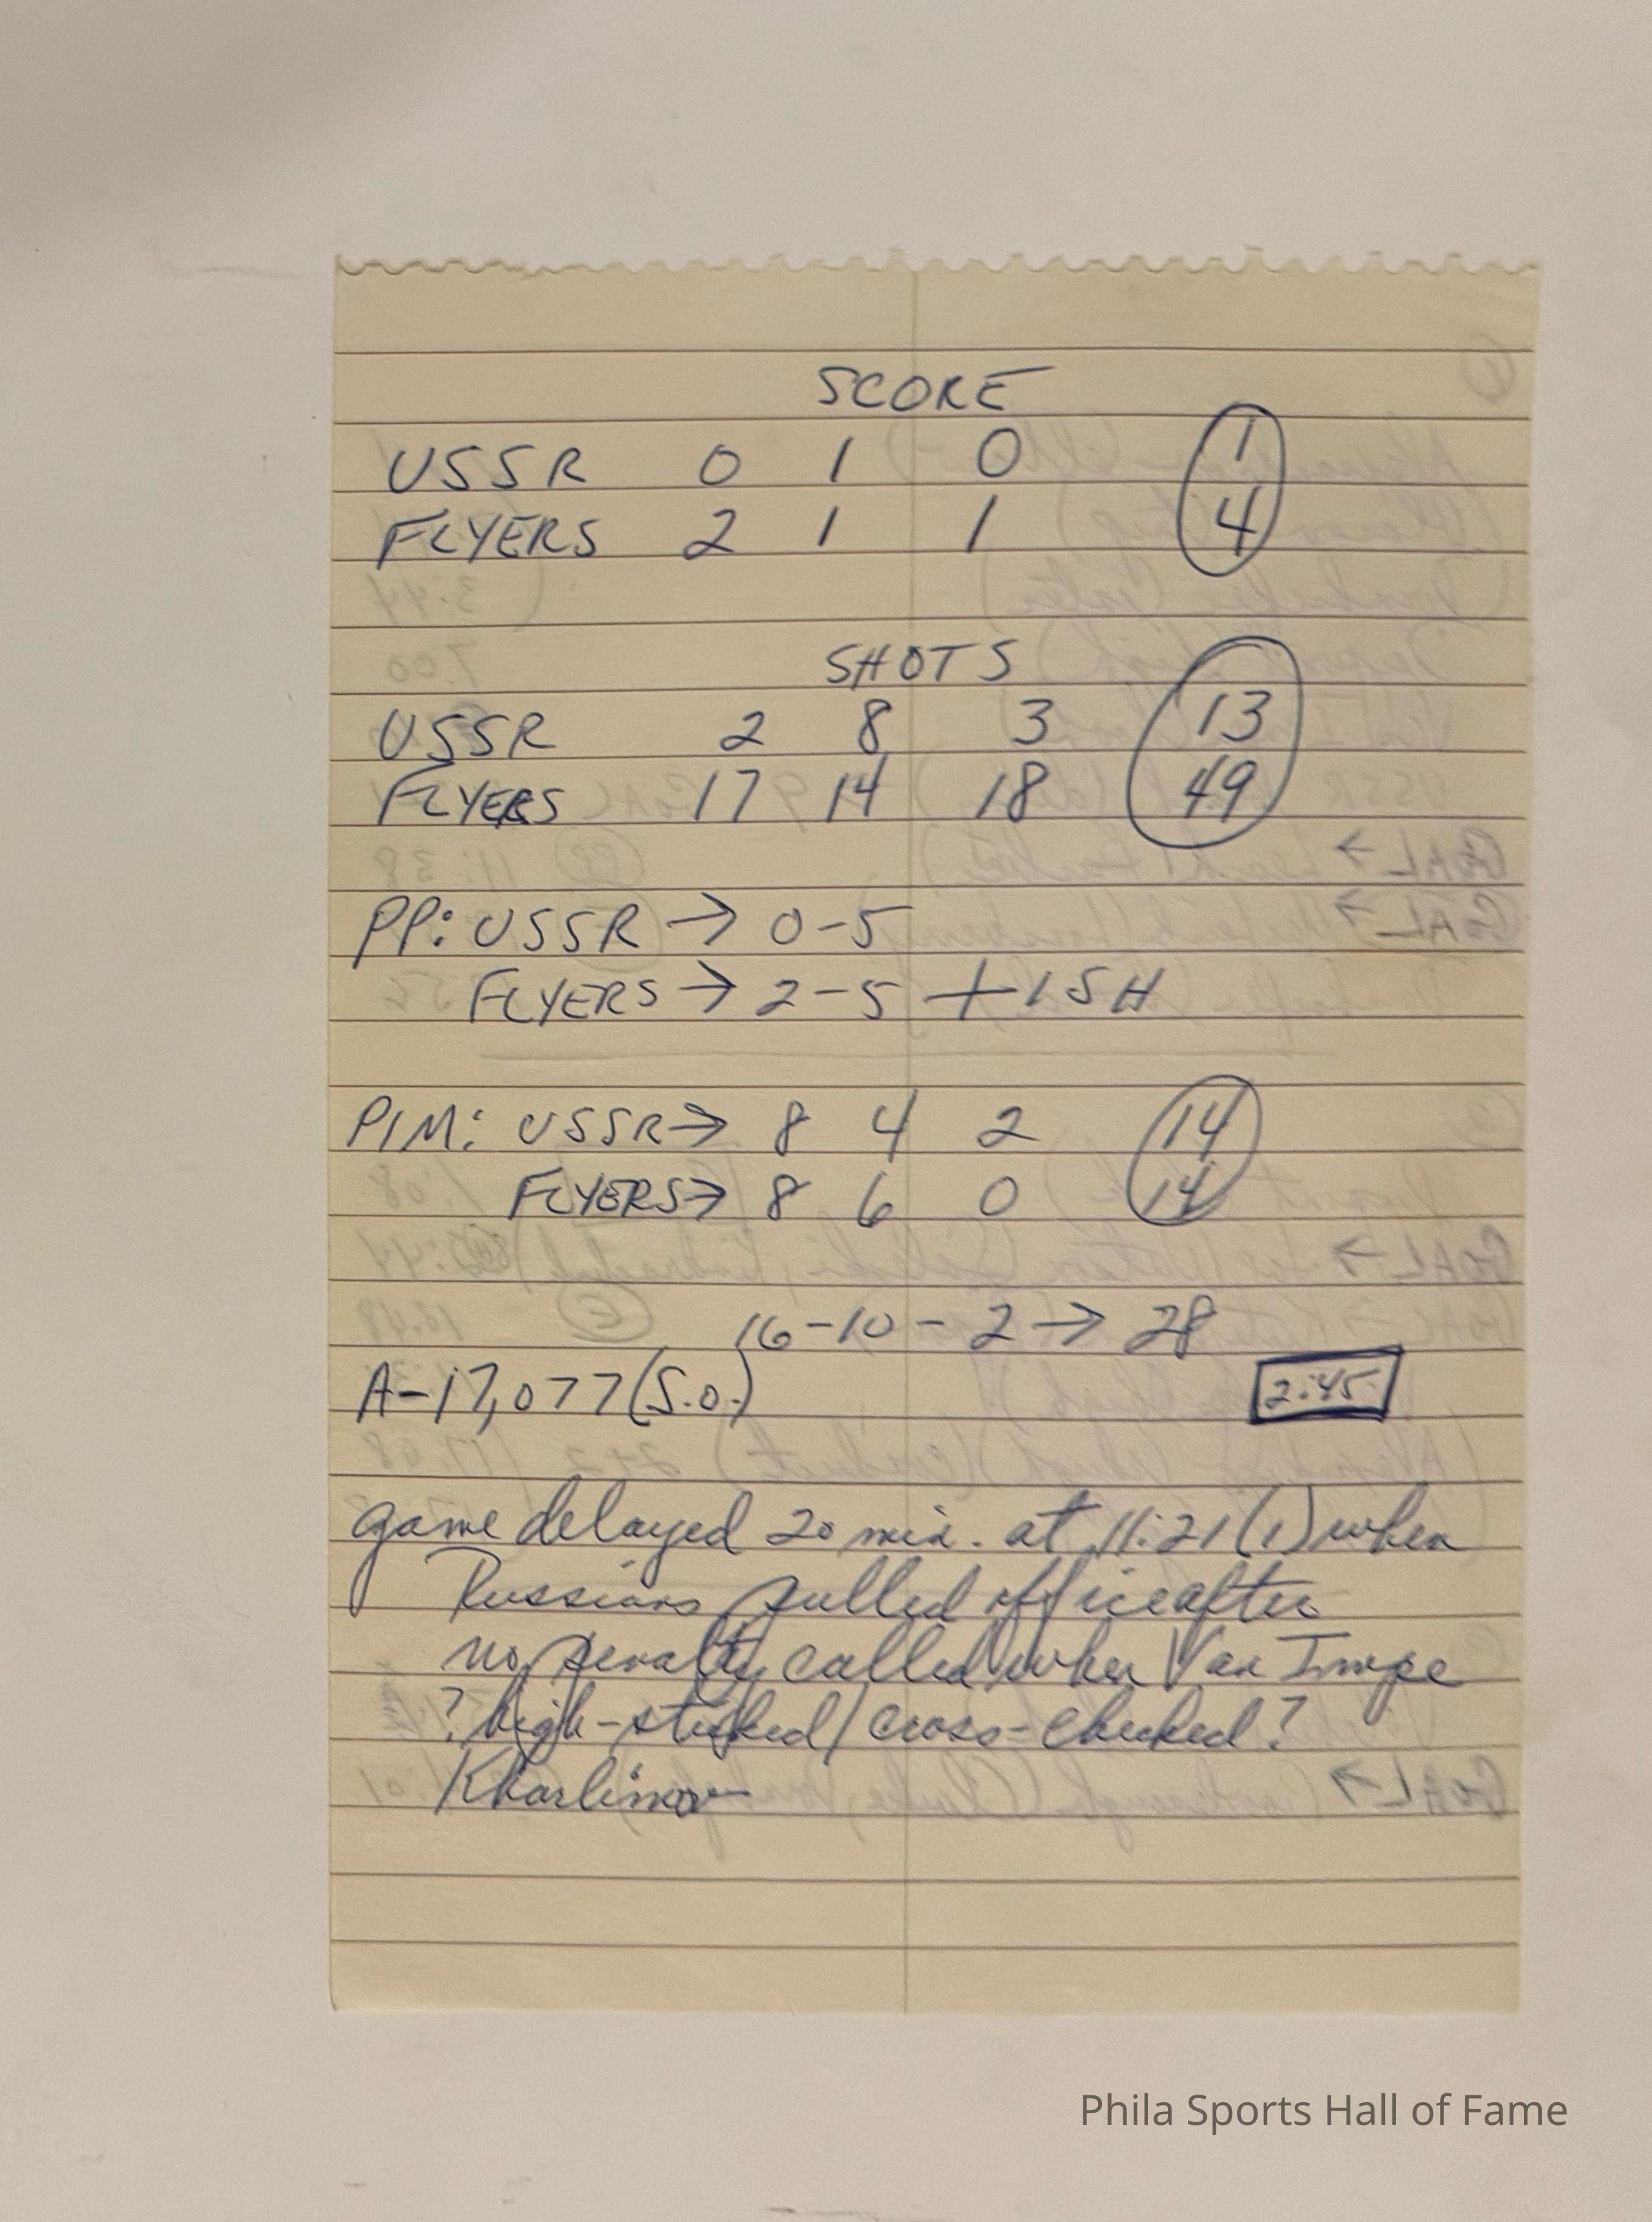 SCORE
USSR 0 1 0 1
FLYERS 2 1 1 4
SHOTS
USSR 2 8 3 13
FLYERS 17 14 18 49
PP: USSR → 0-5
FLYERS → 2-5 + 1 SH
PIM: USSR → 8 4 2 14
FLYERS → 8 6 0 14
16-10-2 → 28
A-17,077 (S.O.) 2:45
game delayed 20 min. at 11:21 (1) when
Russians pulled off ice after
no penalty called when Van Impe
? high-sticked/cross-checked?
Kharlimov
Phila Sports Hall of Fame